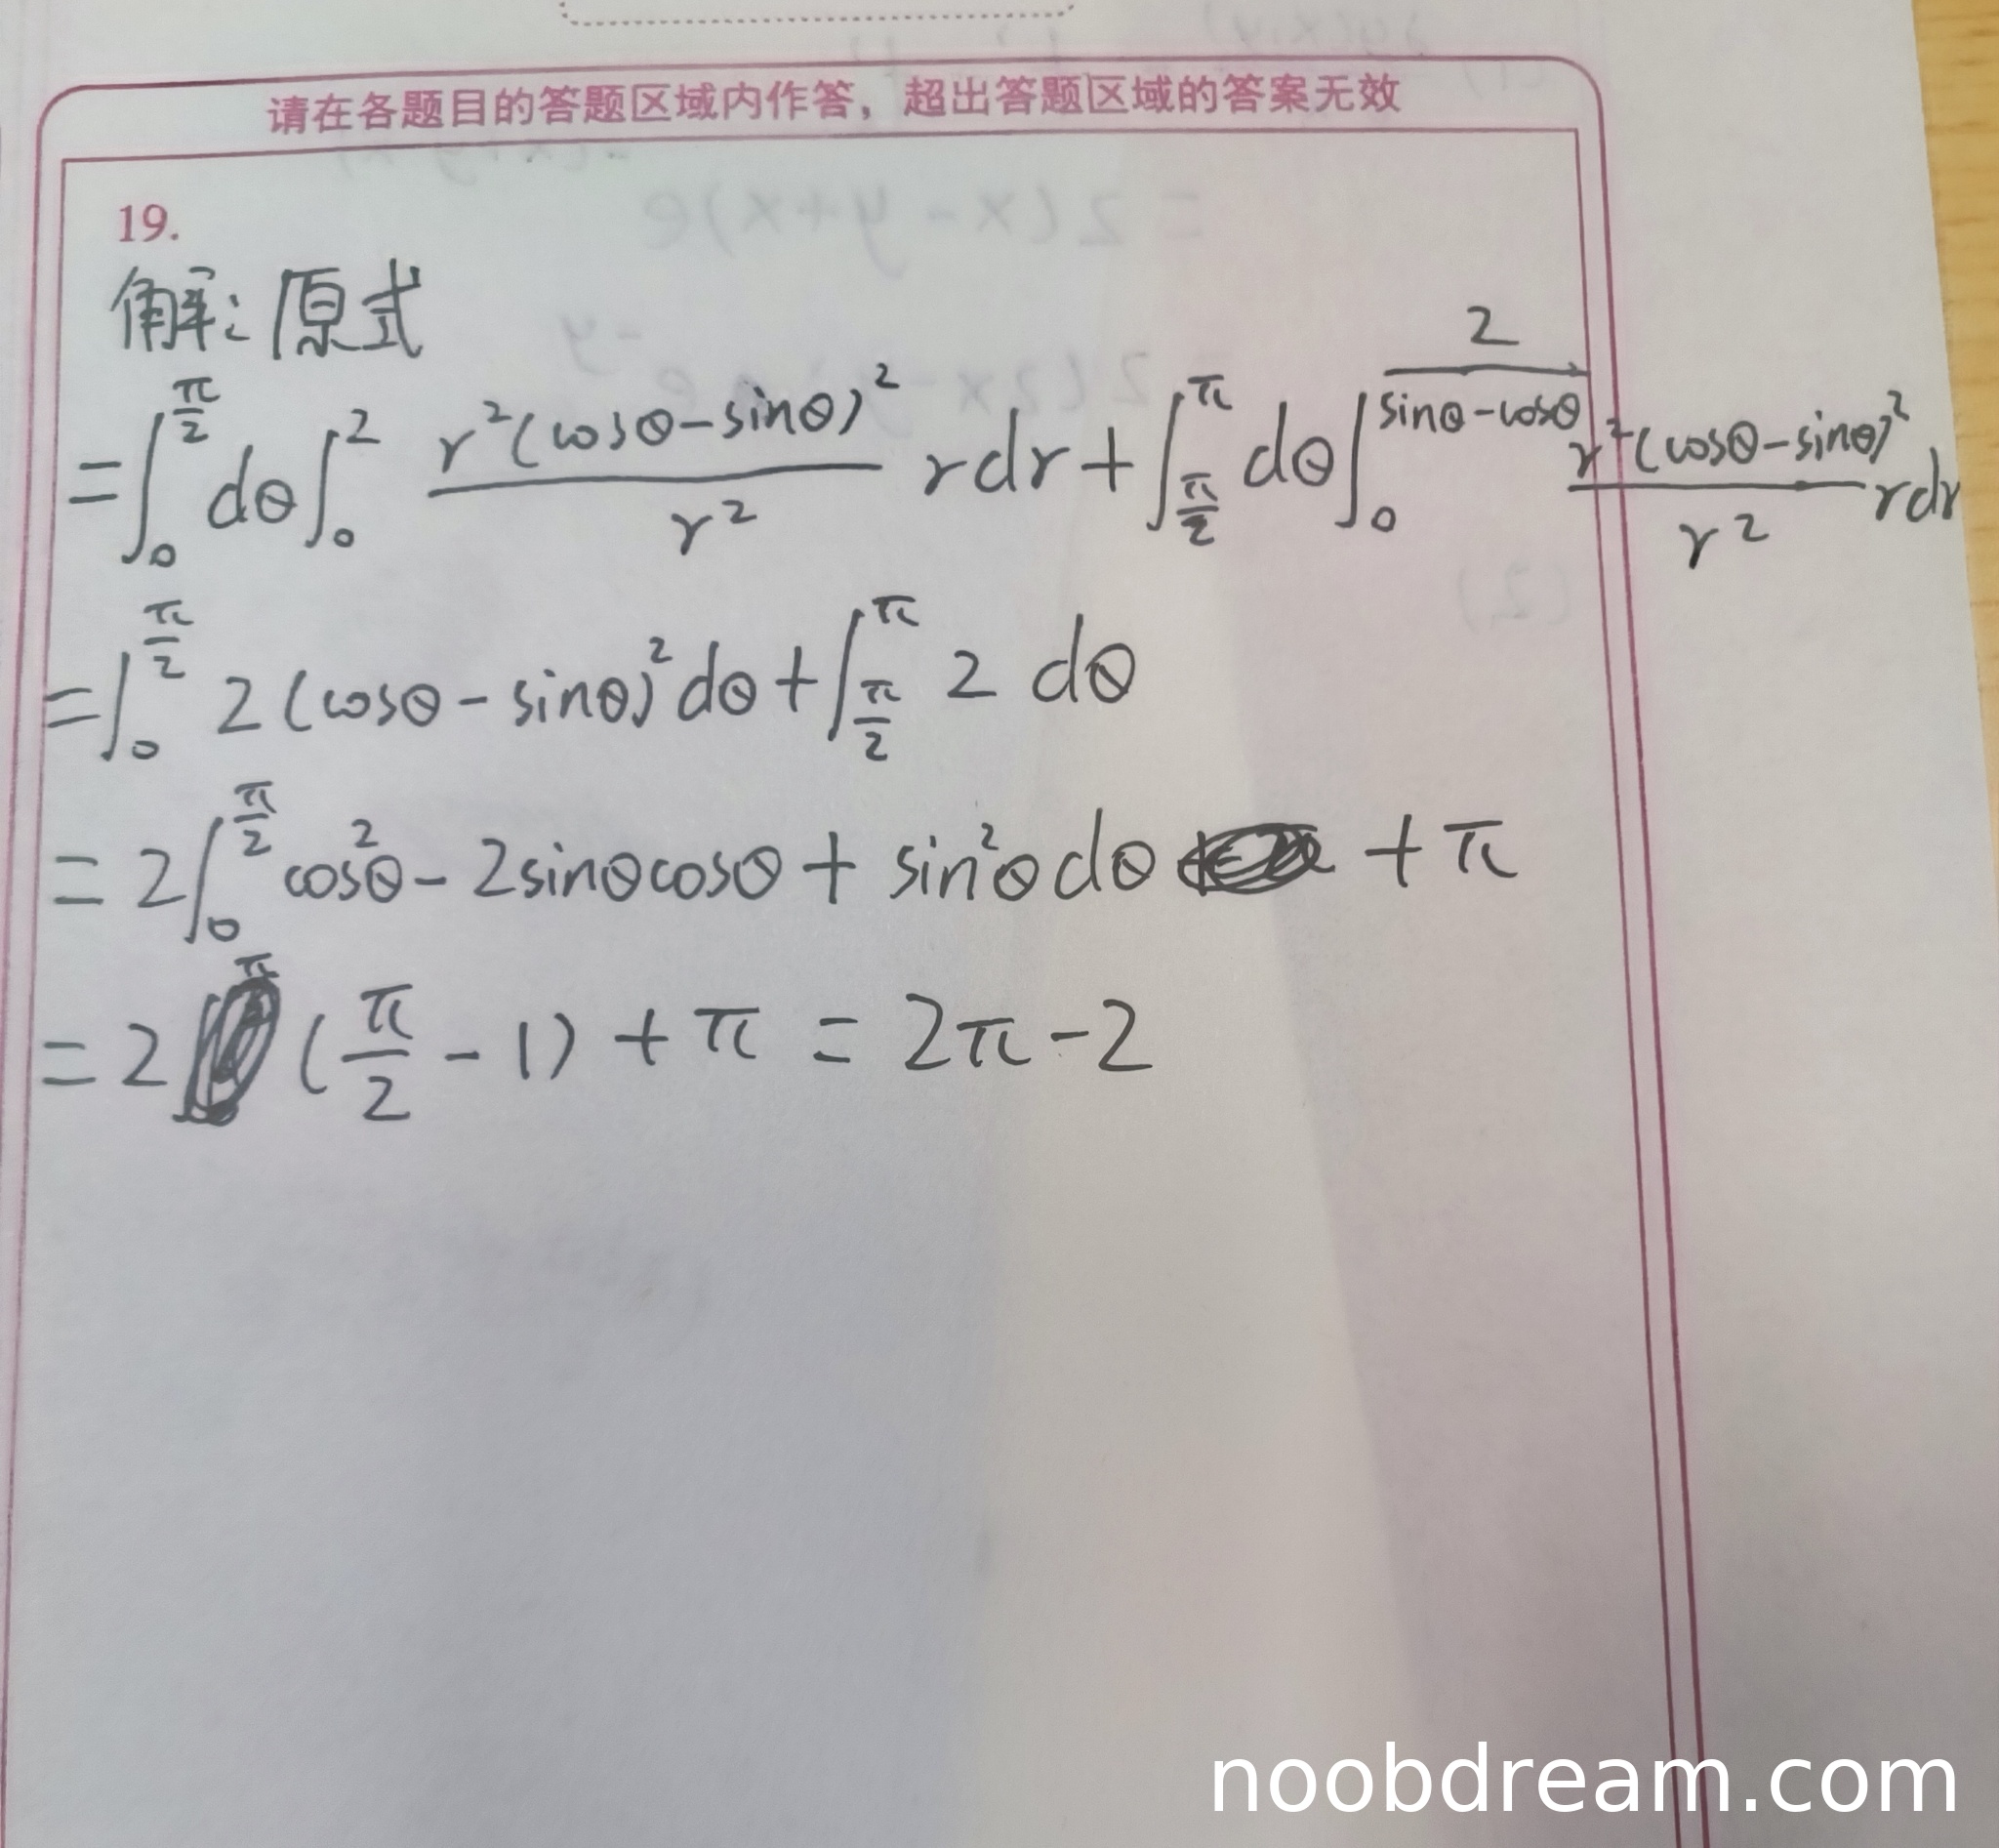 请在各题目的答题区域内作答，超出答题区域的答案无效
19.
解：原式
=∫₀^(π/2) dθ ∫₀² r²(cosθ-sinθ)²/r² rdr + ∫_(π/2)^π dθ ∫₀^(2/(sinθ-cosθ)) r²(cosθ-sinθ)²/r² rdr
=∫₀^(π/2) 2(cosθ-sinθ)² dθ + ∫_(π/2)^π 2 dθ
= 2∫₀^(π/2) cos²θ - 2sinθcosθ + sin²θ dθ + π
= 2 (π/2 - 1) + π = 2π - 2
noobdream.com